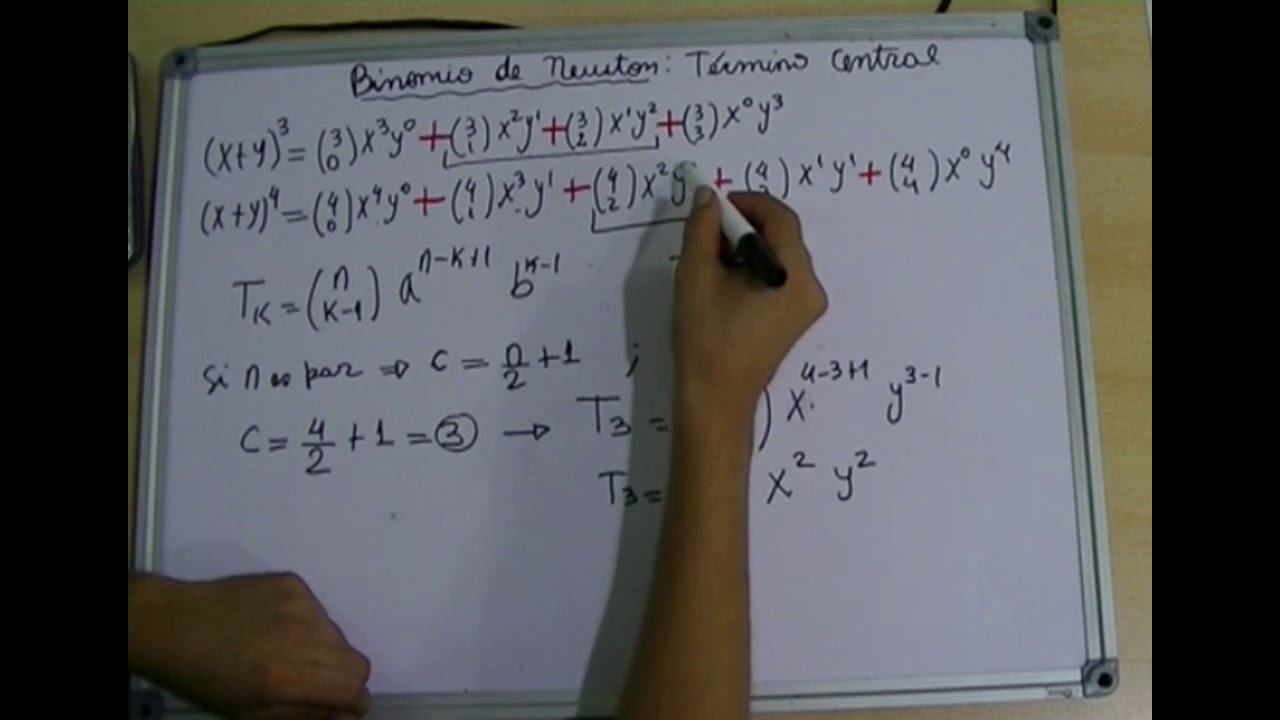 Binomio de Newton: Término Central
(x+y)³ = (3 0) x³y⁰ + (3 1) x²y¹ + (3 2) x¹y² + (3 3) x⁰y³
(x+y)⁴ = (4 0) x⁴y⁰ + (4 1) x³y¹ + (4 2) x²y + (4 ) x¹y¹ + (4 4) x⁰y⁴
T_K = (n K-1) a^(n-K+1) b^(K-1)
Si n es par ⇒ C = n/2 + 1 ;
C = 4/2 + 1 = 3 → T₃ = ) x^(4-3+1) y^(3-1)
T₃ = x² y²